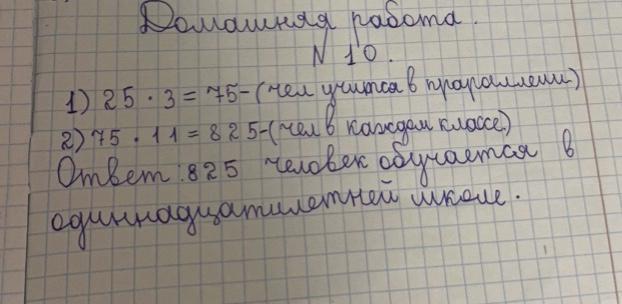 Домашняя работа.
N 10.
1) 25 · 3 = 75-(чел учится в прараллели)
2) 75 · 11 = 825-(чел в каждом классе)
Ответ: 825 человек обучается в
одиннадцатилетней школе.